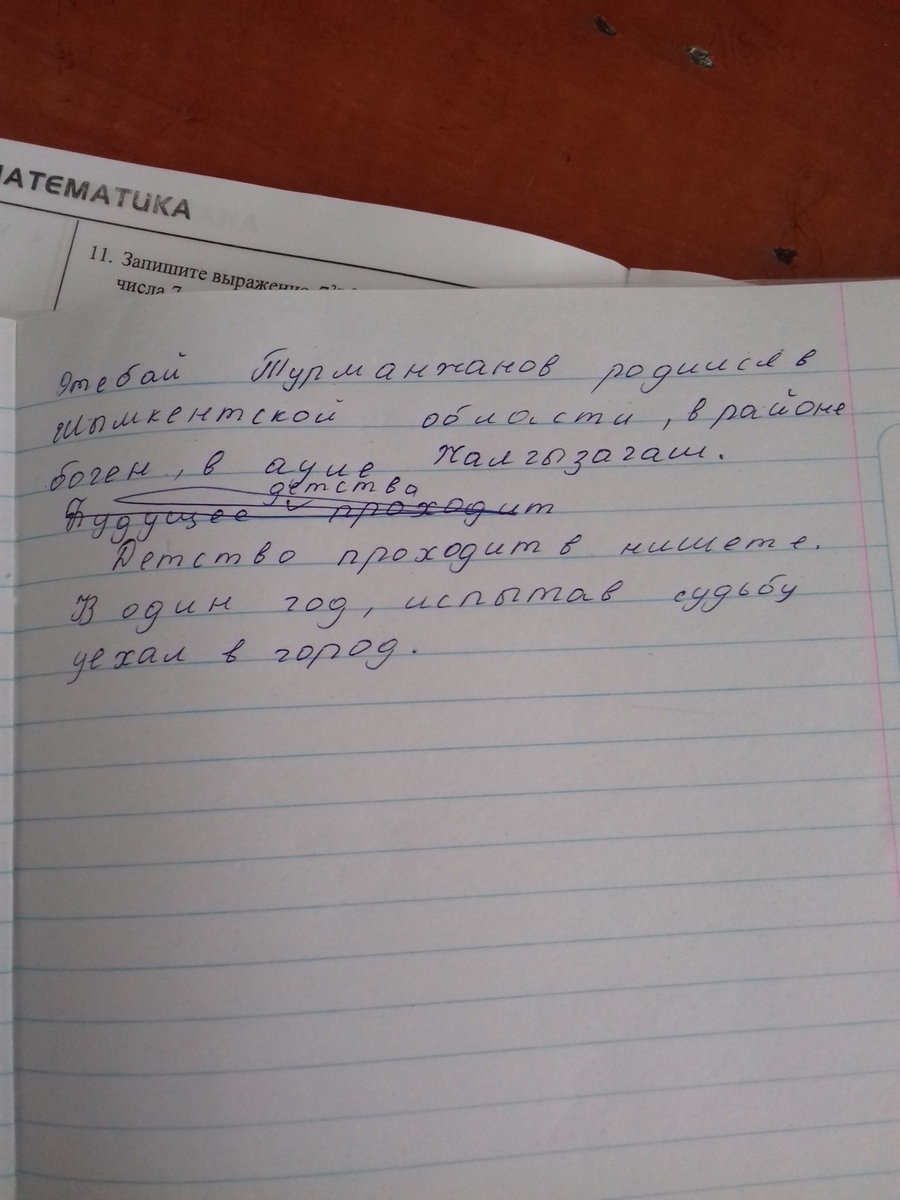 МАТЕМАТИКА
11. Запишите выражение
числа 7
Өтебай Турманжанов родился в
Шымкентской области, в районе
боген, в ауле Жалгызагаш.
детства
Будущее проходит
Детство проходит в нишете.
В один год, испытав судьбу
уехал в город.